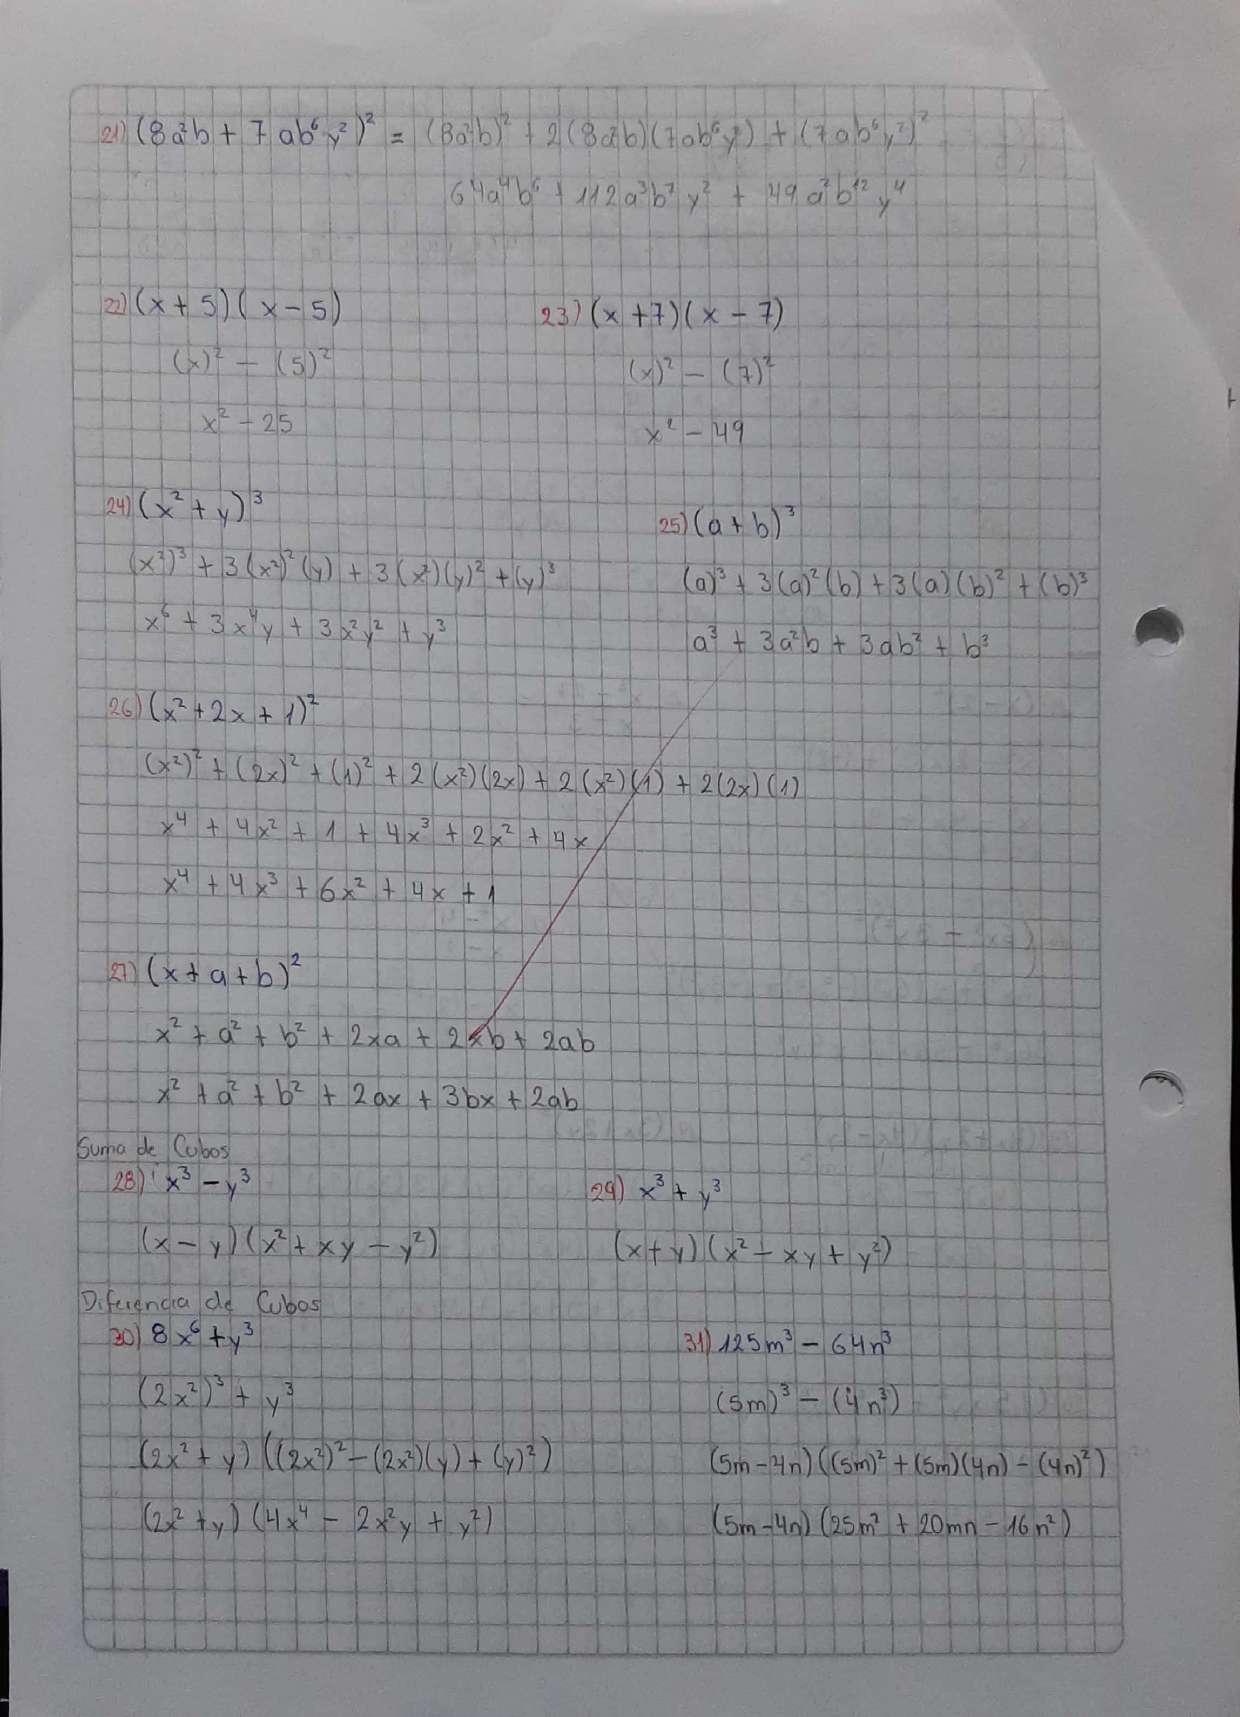 21) (8a²b + 7ab⁶y²)² = (8a²b)² + 2(8a²b)(7ab⁶y²) + (7ab⁶y²)²
64a⁴b⁶ + 112a³b⁷y² + 49a²b¹²y⁴
22) (x + 5)(x - 5)
(x)² - (5)²
x² - 25
23) (x + 7)(x - 7)
(x)² - (7)²
x² - 49
24) (x² + y)³
(x²)³ + 3(x²)²(y) + 3(x²)(y)² + (y)³
x⁶ + 3x⁴y + 3x²y² + y³
25) (a + b)³
(a)³ + 3(a)²(b) + 3(a)(b)² + (b)³
a³ + 3a²b + 3ab² + b³
26) (x² + 2x + 1)²
(x²)² + (2x)² + (1)² + 2(x²)(2x) + 2(x²)(1) + 2(2x)(1)
x⁴ + 4x² + 1 + 4x³ + 2x² + 4x
x⁴ + 4x³ + 6x² + 4x + 1
27) (x + a + b)²
x² + a² + b² + 2xa + 2xb + 2ab
x² + a² + b² + 2ax + 3bx + 2ab
Suma de Cubos
28) x³ - y³
(x - y)(x² + xy - y²)
29) x³ + y³
(x + y)(x² - xy + y²)
Diferencia de Cubos
30) 8x⁶ + y³
(2x²)³ + y³
(2x² + y)((2x²)² - (2x²)(y) + (y)²)
(2x² + y)(4x⁴ - 2x²y + y²)
31) 125m³ - 64n³
(5m)³ - (4n³)
(5m - 4n)((5m)² + (5m)(4n) - (4n)²)
(5m - 4n)(25m² + 20mn - 16n²)